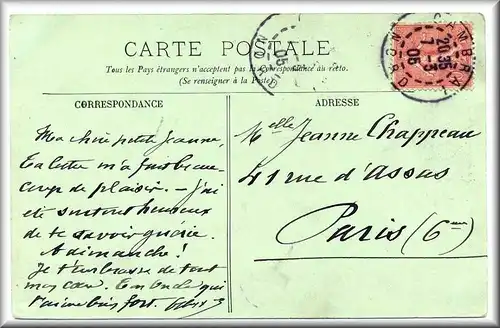 CARTE POSTALE
Tous les Pays étrangers n'acceptent pas la Correspondance au recto.
(Se renseigner à la Poste)
CORRESPONDANCE
Ma chère petite Jeanne,
Ta lettre m'a fait beau-
coup de plaisir. - J'ai
été surtout heureux
de te savoir guérie.
A dimanche!
Je t'embrasse de tout
mon cœur. Ton oncle qui
t'aime bien fort.
ADRESSE
Melle Jeanne Chappeau
41 rue d'Assas
Paris (6eme)
CAMBRAI
20 35
7 - 3
05
NORD
05
NORD